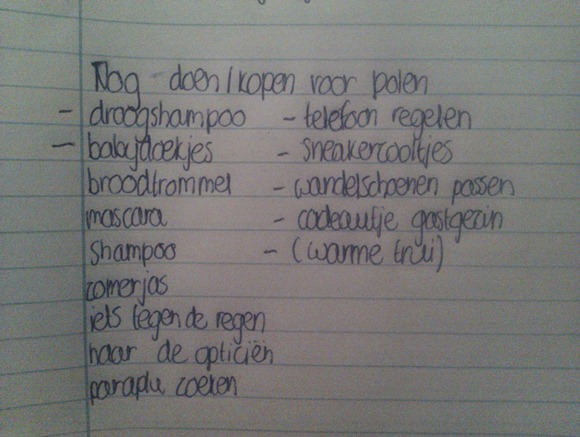 Nog doen/kopen voor polen
- droogshampoo - telefoon regelen
- babydoekjes - sneakersooltjes
broodtrommel - wandelschoenen passen
mascara - cadeautje gastgezin
shampoo - (warme trui)
zomerjas
iets tegen de regen
naar de opticiën
paraplu zoeken